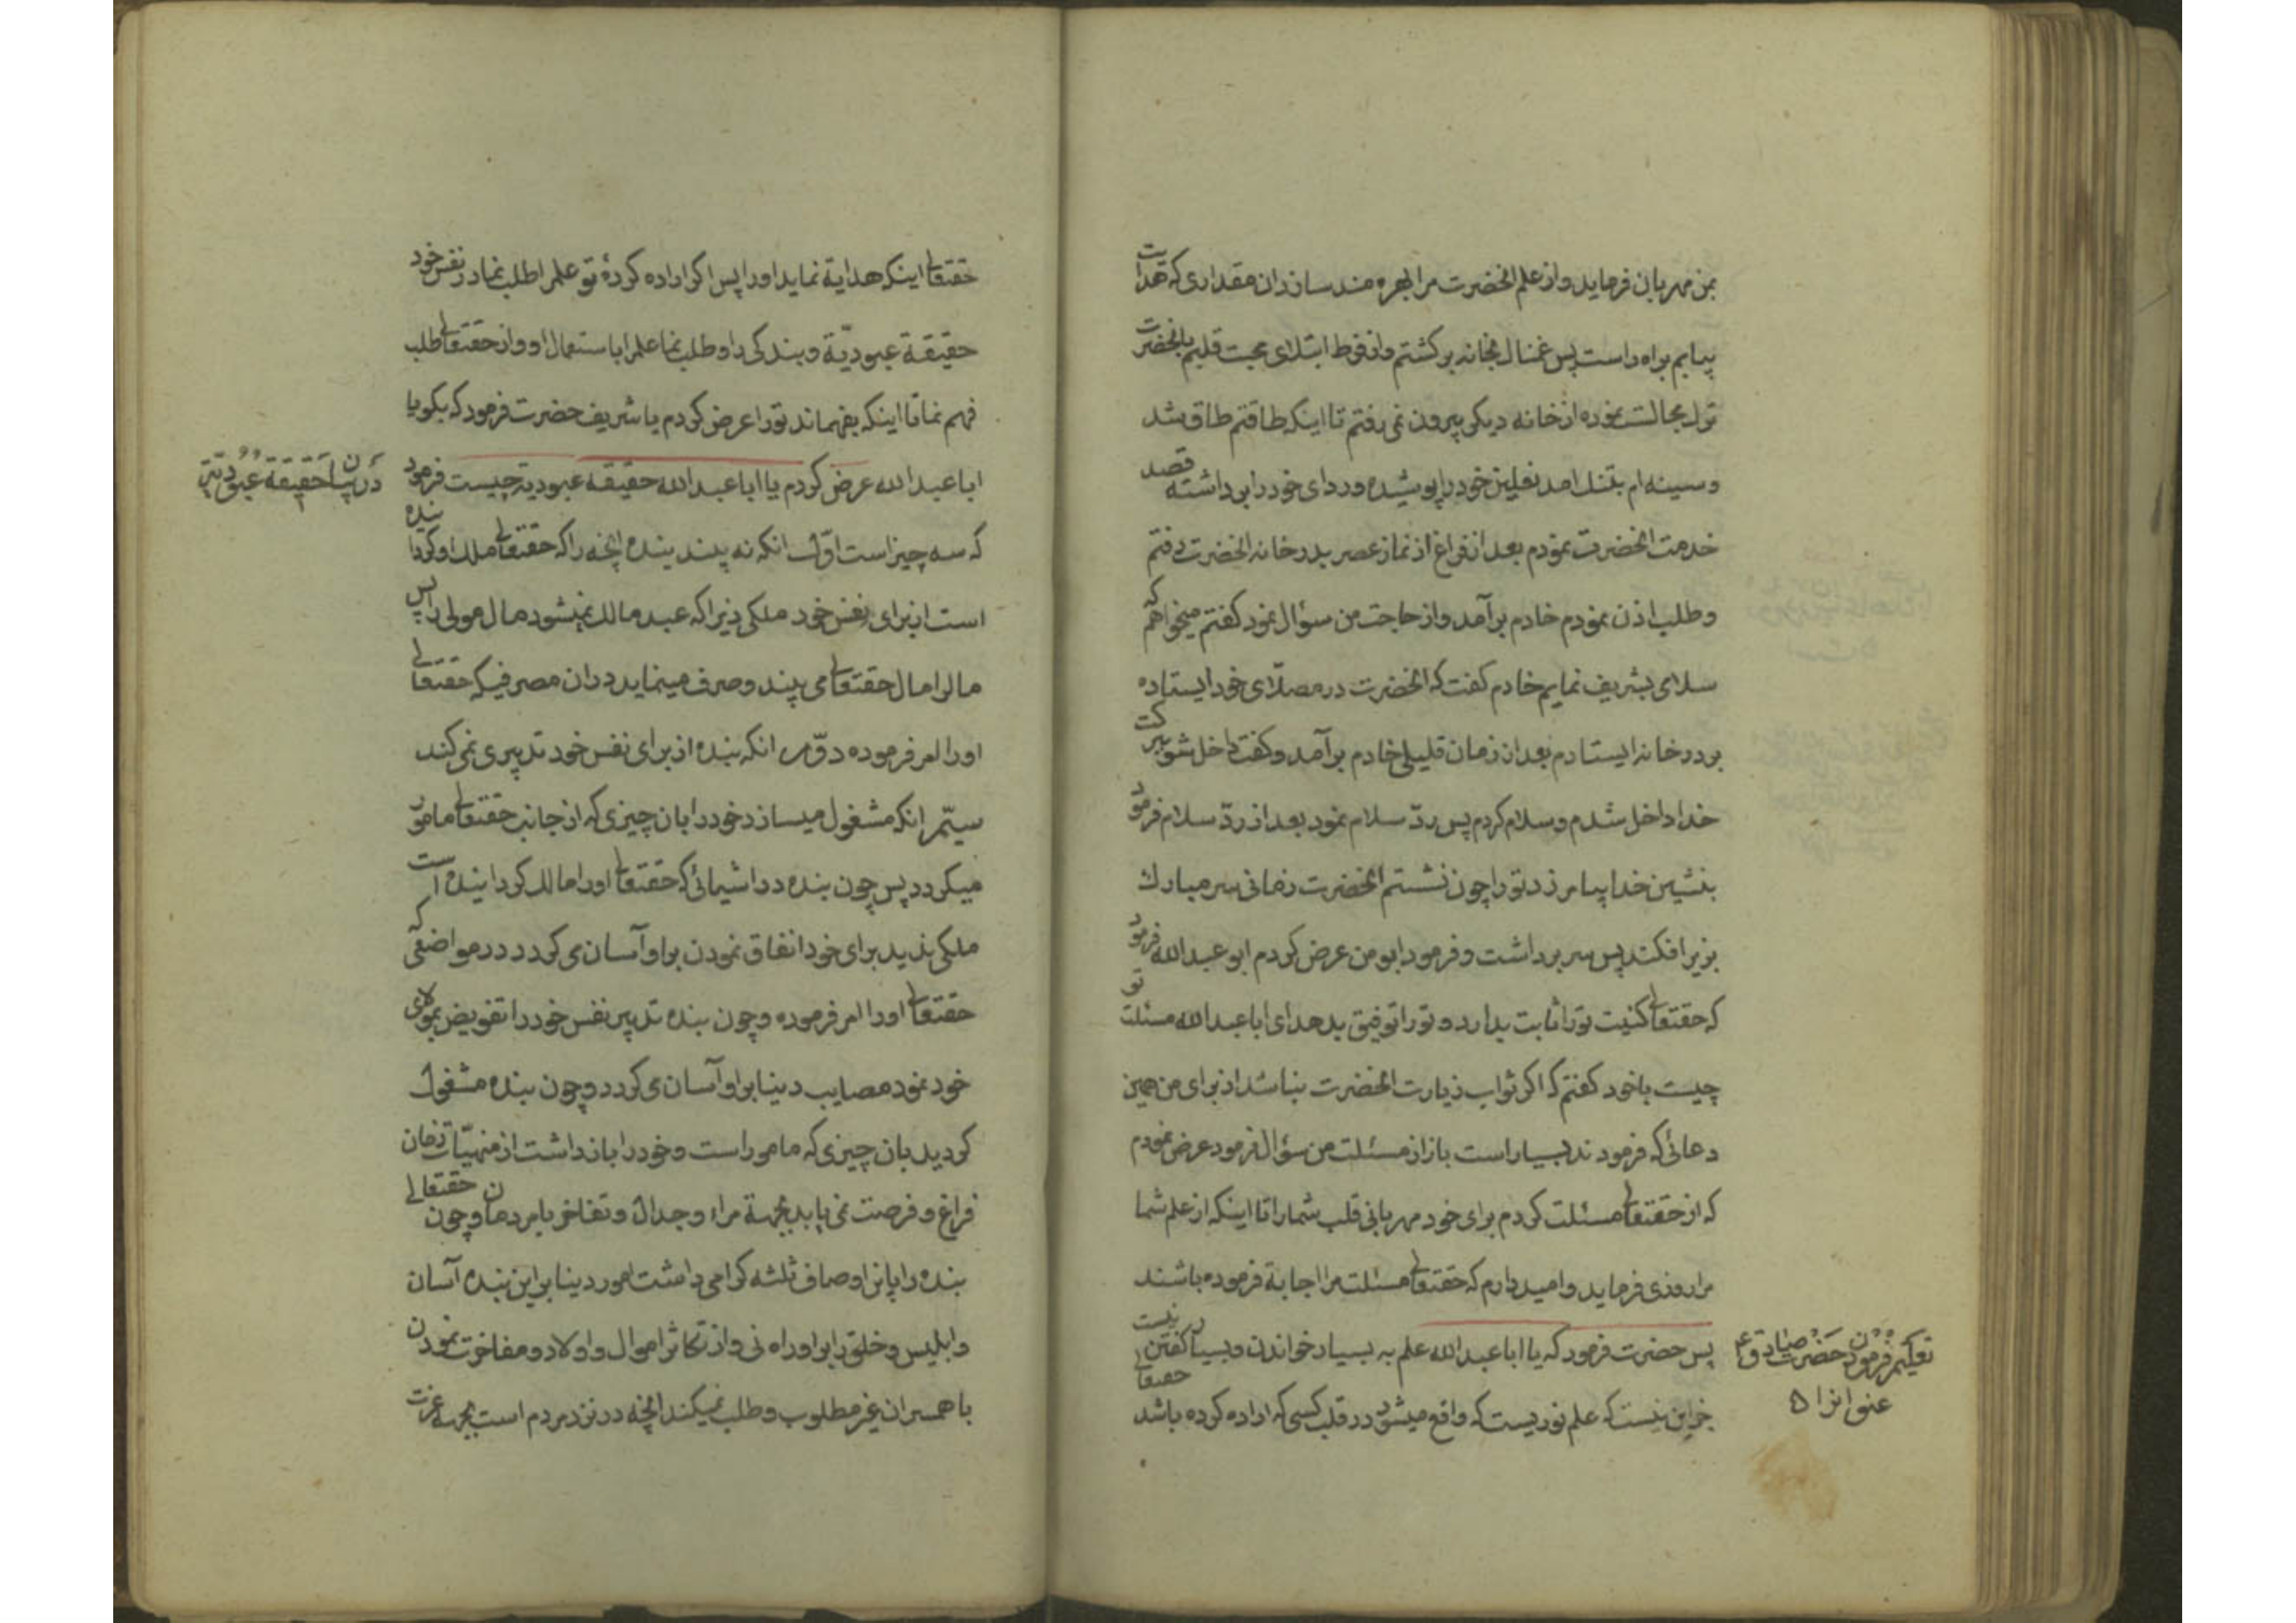 بمن مهربان فرماید و از علم انحضرت مرا بهره مند سازد ان مقداری که هدایت
بیابم براه راست پس غمناك بخانه برکشتم و از فرط ابتلای محبت قلبیم بانحضرت
ترك مجالست نموده از خانه دیکر بیرون نمی رفتم تا اینکه طاقتم طاق شد
و سینه ام بتنك امد نعلین خود را پوشیده و ردای خود را برداشته قصد
خدمت انحضرت نمودم بعد از فراغ از نماز عصر بدر خانه انحضرت رفتم
و طلب اذن نمودم خادم برآمد و از حاجت من سؤال نمود کفتم میخواهم که
سلامی بشریف نمایم خادم کفت که انحضرت در مصلّای خود ایستاده
بر در خانه ایستادم بعد از زمان قلیلی خادم برآمد و کفت داخل شو ببرکت
خدا داخل شدم و سلام کردم پس ردّ سلام نمود بعد از ردّ سلام فرمود
بنشین خدا بیامرزد تو را چون نشستم انحضرت زمانی سر مبارك
بزیر افکند پس سر برداشت و فرمود ابو من عرض کردم ابو عبد الله فرمود
که حقتعالی کنیت تو را ثابت بدارد و تو را توفیق بدهد ای ابا عبد الله مسئلت تو
چیست با خود کفتم که اکر ثواب زیارت انحضرت نباشد از برای من همین
دعائی که فرمودند بسیار است باز از مسئلت من سؤال فرمود عرض نمودم
که از حقتعالی مسئلت کردم برای خود مهربانی قلب شما را تا اینکه از علم شما
مرا روزی فرماید و امید دارم که حقتعالی مسئلت مرا اجابة فرموده باشند
پس حضرت فرمود که یا ابا عبد الله علم به بسیار خواندن و بسیار کفتن نیست
جز این نیست که علم نوریست که واقع میشود در قلب کسی که اراده کرده باشد حقتعالی
تعلیم فرمودن حضرت صادق ع
عنوانرا ۵
حقتعالی اینکه هدایة نماید او را پس اکر اراده کردهٔ تو علم را طلب نما در نفس خود
حقیقة عبودیّة و بندکی را و طلب نما علم را باستعمال او و از حقتعالی طلب
فهم نما تا اینکه بفهماند تو را عرض کردم یا شریف حضرت فرمود که بکو یا
ابا عبد الله عرض کردم یا ابا عبد الله حقیقة عبودیة چیست فرمود
در بیان حقیقة عبودیّت
که سه چیز است اوّل انکه نه بیند بنده انچه را که حقتعالی ملك او کردانیده
است از برای نفس خود ملکی زیرا که عبد مالك نمیشود مال مولی را پس
مال را مال حقتعالی می بیند و صرف مینماید در ان مصرفیکه حقتعالی
او را امر فرموده دوّم انکه بنده از برای نفس خود تدبیری نمی کند
سیّم انکه مشغول میسازد خود را بان چیزی که از جانب حقتعالی مامور
میکردد پس چون بنده در اشیائی که حقتعالی او را مالك کردانیده است
ملکی ندید برای خود انفاق نمودن بر او آسان می کردد در مواضعی که
حقتعالی او را امر فرموده و چون بنده تدبیر نفس خود را تفویض بمولای
خود نمود مصایب دنیا بر او آسان می کردد و چون بنده مشغول
کردید بان چیزی که مامور است و خود را باز داشت از منهیّات زمان
فراغ و فرصت نمی یابد بجهة مراء و جدال و تفاخر با مردمان و چون حقتعالی
بنده را باین اوصاف ثلثه کرامی داشت امور دنیا بر این بنده آسان
و ابلیس و خلق را بر او راه نی و از تکاثر اموال و اولاد و مفاخرت نمودن
با همسران غیر مطلوب و طلب نمیکند انچه در نزد مردم است بجهة عزت